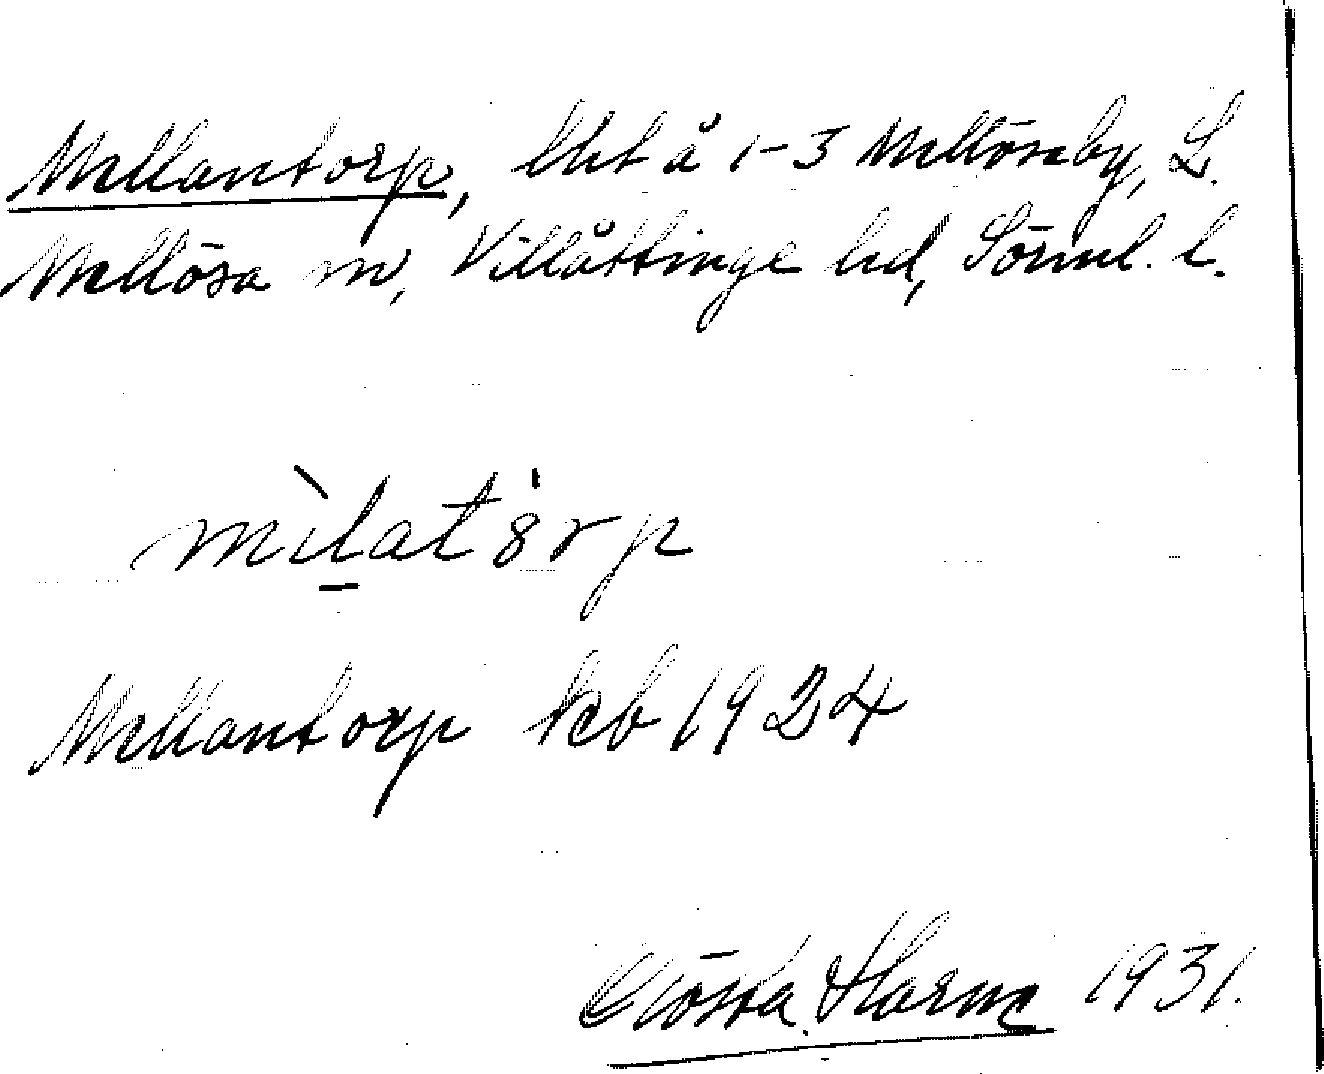 Mellantorp, lht å 1-3 Mellösaby, L.
Mellösa sn, Villåttinge hd, Sörml. l.
mìlatȯrp
Mellantorp kb 1924
Gösta Harne 1931.